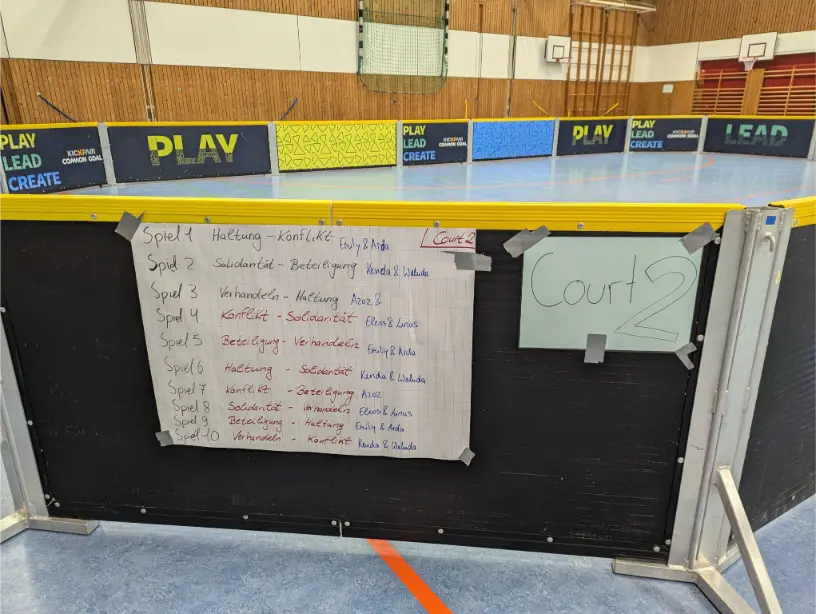 PLAY
LEAD
CREATE
KICKFAIR
COMMON GOAL
PLAY
PLAY
LEAD
CREATE
KICKFAIR
COMMON GOAL
PLAY
PLAY
LEAD
CREATE
KICKFAIR
COMMON GOAL
LEAD
Spiel 1 Haltung - Konflikt Emily & Arda
Court 2
Spiel 2 Solidarität - Beteiligung Kenda & Walida
Spiel 3 Verhandeln - Haltung Azoz &
Spiel 4 Konflikt - Solidarität Eleas & Linus
Spiel 5 Beteiligung - Verhandeln Emily & Arda
Spiel 6 Haltung - Solidarität Kenda & Walida
Spiel 7 Konflikt - Beteiligung Azoz
Spiel 8 Solidarität - Verhandeln Eleas & Linus
Spiel 9 Beteiligung - Haltung Emily & Arda
Spiel 10 Verhandeln - Konflikt Kenda & Walida
Court 2